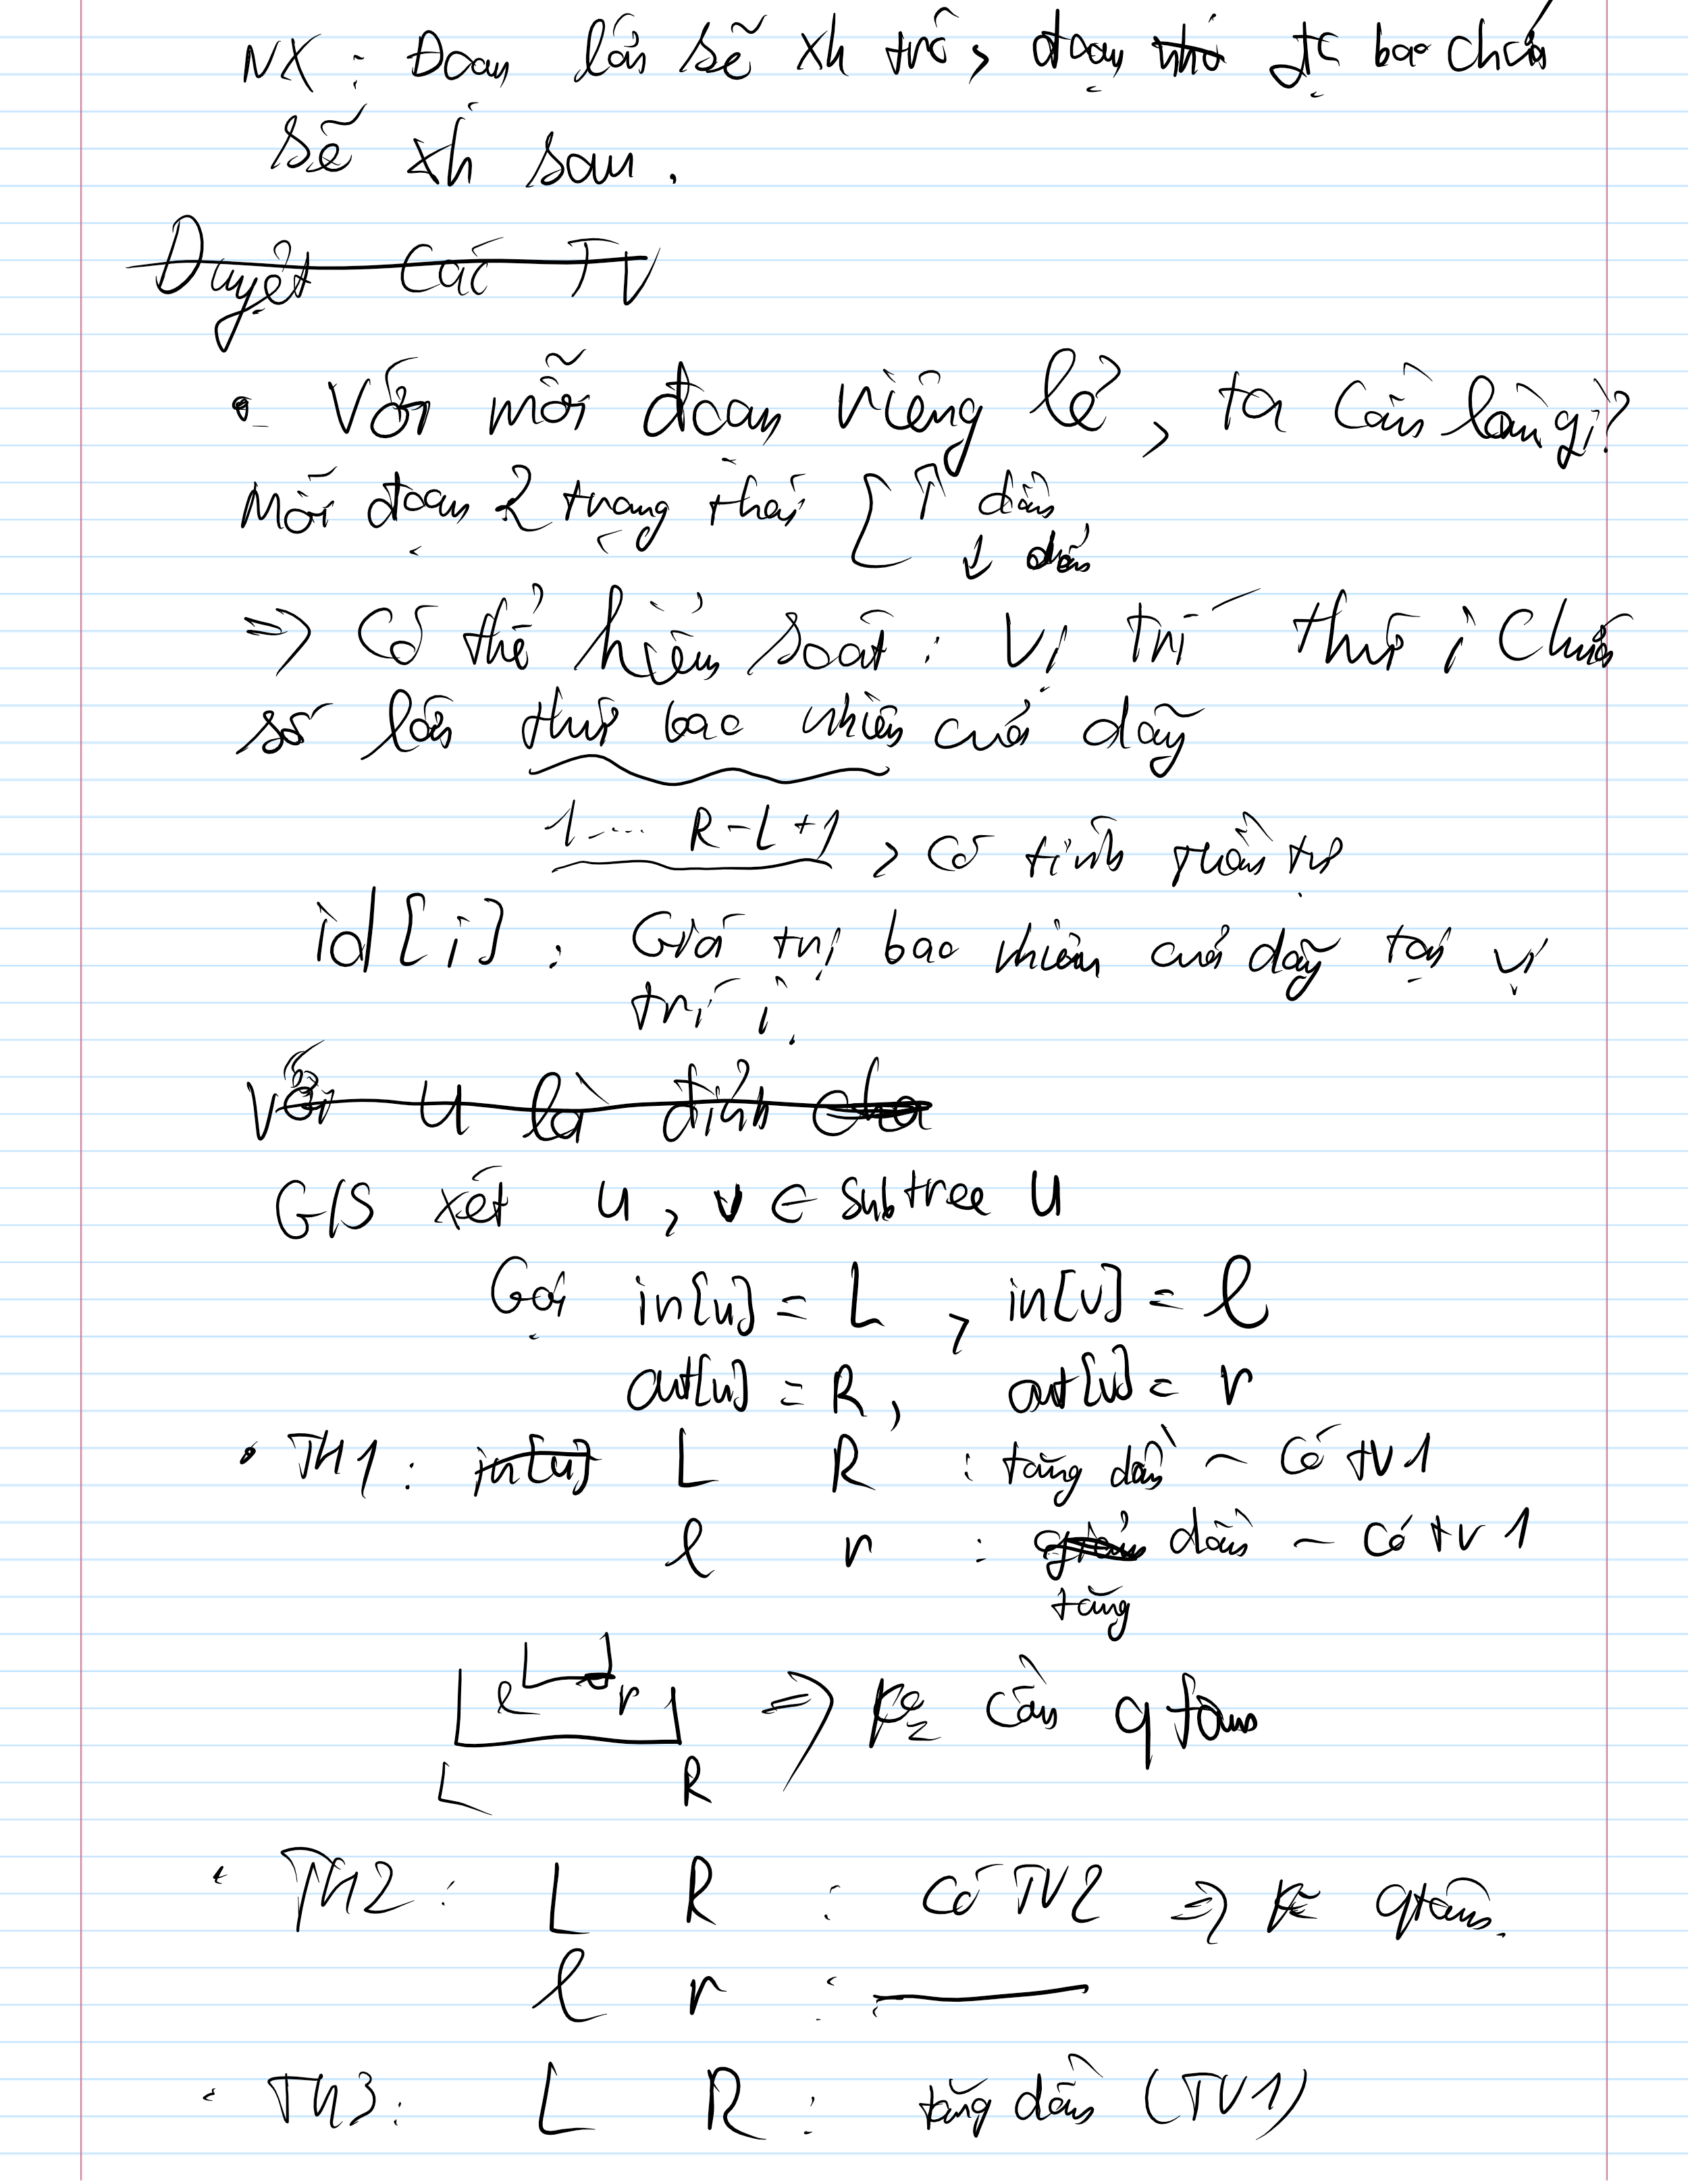 NX : Đoạn lớn sẽ xh trc, đoạn nhỏ đc bao chứa
sẽ xh sau.
Duyệt các TV
• Với mỗi đoạn riêng lẻ, ta cần làm gì?
Mỗi đoạn 2 trạng thái [ ↑ dần
↓ dần
=> Có thể kiểm soát : Vị trí thứ i chứa
số lớn thứ bao nhiêu của dãy
1.... R-L+1, có tính tuần tự
id[i] : Giá trị bao nhiêu của dãy tại vị
trí i.
Với u là đỉnh cha
G/S xét u, v ∈ subtree u
Gọi in[u] = L , in[v] = l
out[u] = R, out[v] = r
• TH1 : in[u] L R : tăng dần ~ Có TV1
l r : giảm dần ~ Có TV 1
tăng
l r => k cần q tâm
L R
• TH2 : L R : Có TV2 => k qtâm.
l r : ———
• TH3 : L R : tăng dần (TV1)